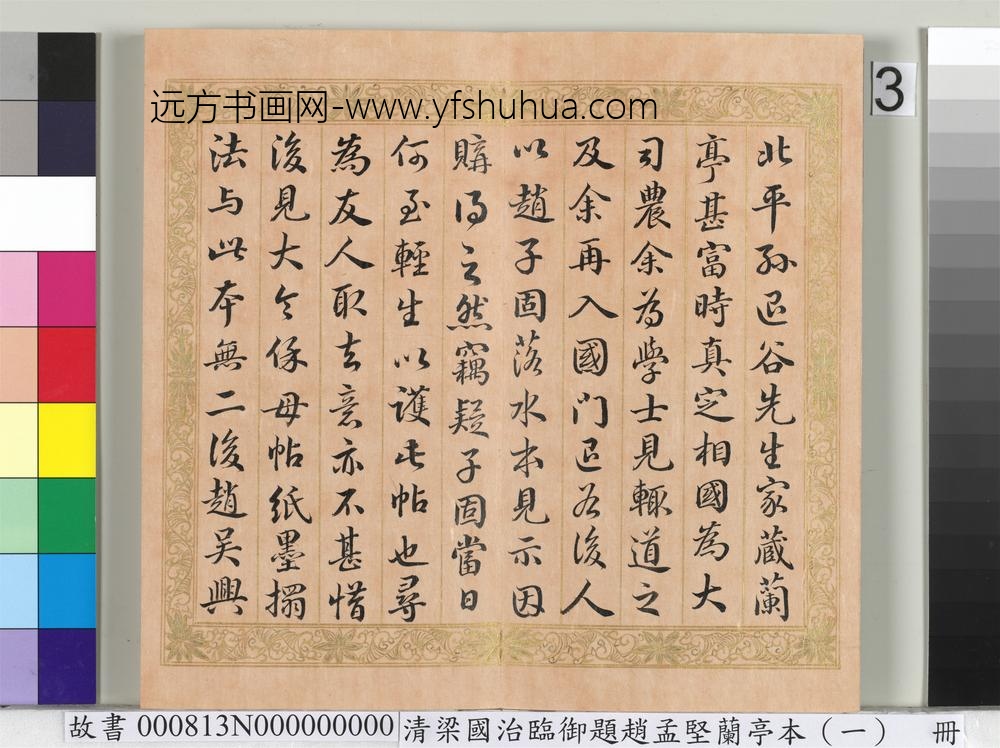 远方书画网-www.yfshuhua.com
3
北平孫退谷先生家藏蘭
亭甚富時真定相國為大
司農余為學士見輒道之
及余再入國門退谷後人
以趙子固落水本見示因
購得之然竊疑子固當日
何至輕生以護此帖也尋
為友人取去意亦不甚惜
後見大令保母帖紙墨搨
法与此本無二後趙吴興
故書 000813N000000000
清梁國治臨御題趙孟堅蘭亭本（一） 冊